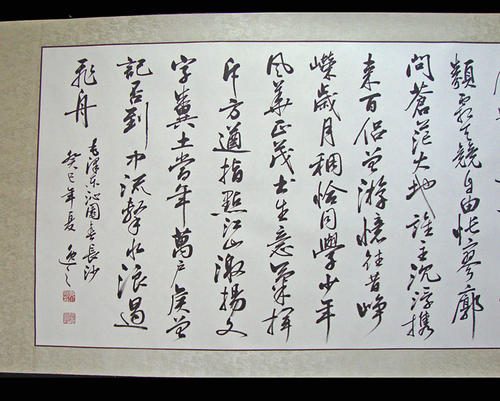 類霜天競自由悵寥廓
問蒼茫大地誰主沉浮攜
来百侶曾游憶往昔崢
嶸歲月稠恰同學少年
風華正茂書生意氣揮
斥方遒指點江山激揚文
字糞土當年萬戶侯曾
記否到中流擊水浪遏
飛舟
毛澤東沁園春長沙
癸巳年夏